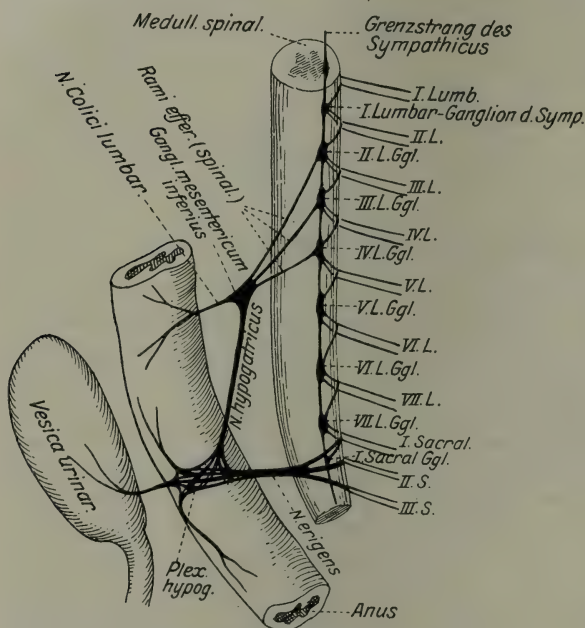 Medull. spinal.
Grenzstrang des
Sympathicus
N. Colici lumbar.
Rami effer. (Spinal.)
Gangl. mesentericum
inferius
I. Lumb.
I. Lumbar-Ganglion d. Symp.
II. L.
II. L. Ggl.
III. L.
III. L. Ggl.
IV. L.
IV. L. Ggl.
V. L.
V. L. Ggl.
VI. L.
VI. L. Ggl.
VII. L.
VII. L. Ggl.
I. Sacral.
I. Sacral Ggl.
II. S.
III. S.
N. hypogatricus
Vesica urinar.
N. erigens
Plex.
hypog.
Anus